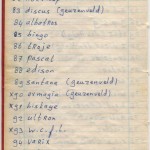 83 discus (geuzenveld)
84 albatros
85 bingo
86 Evoje
87 Pascal
88 edison
89 santana (geuzenveld)
x90 osmagia (geuzenveld)
x91 biekage
92 ultron
x93 w.c.f.l.
94 VARIX